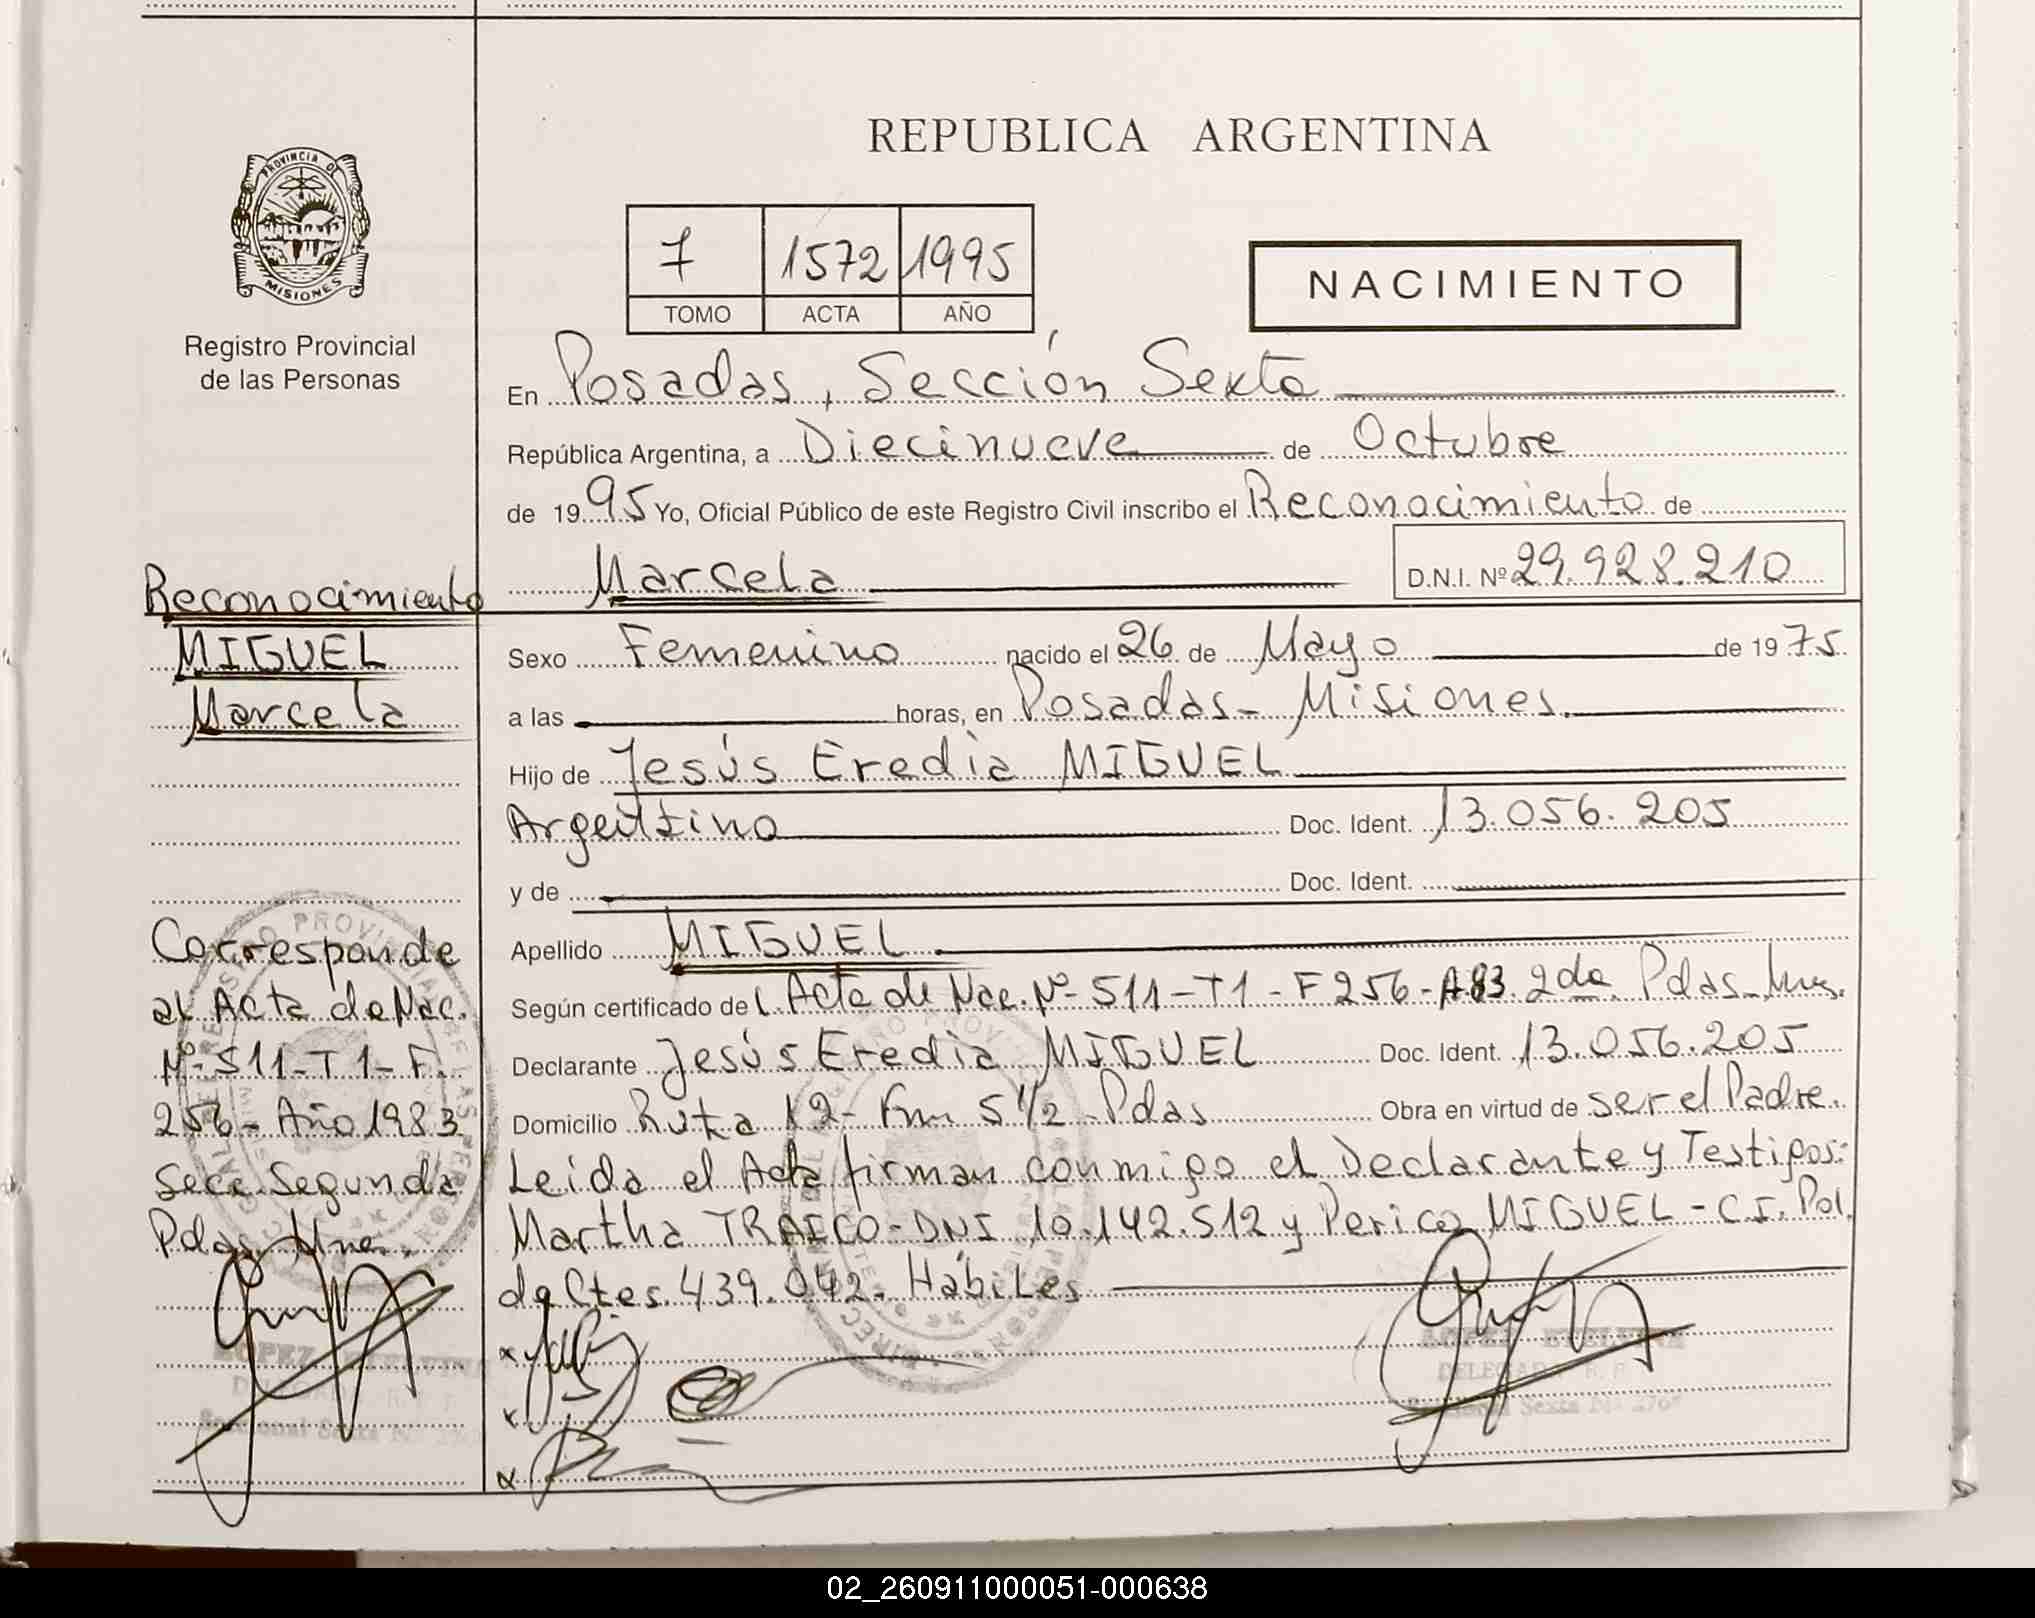 REPUBLICA ARGENTINA
PROVINCIA DE
MISIONES
Registro Provincial
de las Personas
7 1572 1995
TOMO ACTA AÑO
NACIMIENTO
En Posadas, Sección Sexta
República Argentina, a Diecinueve de Octubre
de 1995 Yo, Oficial Público de este Registro Civil inscribo el Reconocimiento de
Marcela D.N.I. Nº 29.928.210
Reconocimiento
MIGUEL
Marcela
Sexo Femenino nacido el 26 de Mayo de 1975
a las horas, en Posadas - Misiones.
Hijo de Jesús Eredia MIGUEL
Argentino Doc. Ident. 13.056.205
y de Doc. Ident.
Apellido MIGUEL
Según certificado del Acta de Nac. Nº 511-T1-F 256-A83. 2da Pdas. Mnes.
Declarante Jesús Eredia MIGUEL Doc. Ident. 13.056.205
Domicilio Ruta 12 - Km 5 1/2 - Pdas Obra en virtud de ser el Padre.
Leida el Acta firman conmigo el Declarante y Testigos:
Martha TRAICO - DNI 10.142.512 y Perico MIGUEL - C.I. Pol.
de Ctes. 439.042. Hábiles
Corresponde
al Acta de Nac.
Nº 511-T1-F.
256 - Año 1983
Secc. Segunda
Pdas. Mnes.
LOPEZ ETELVINA
LOPEZ ETELVINA
02_260911000051-000638